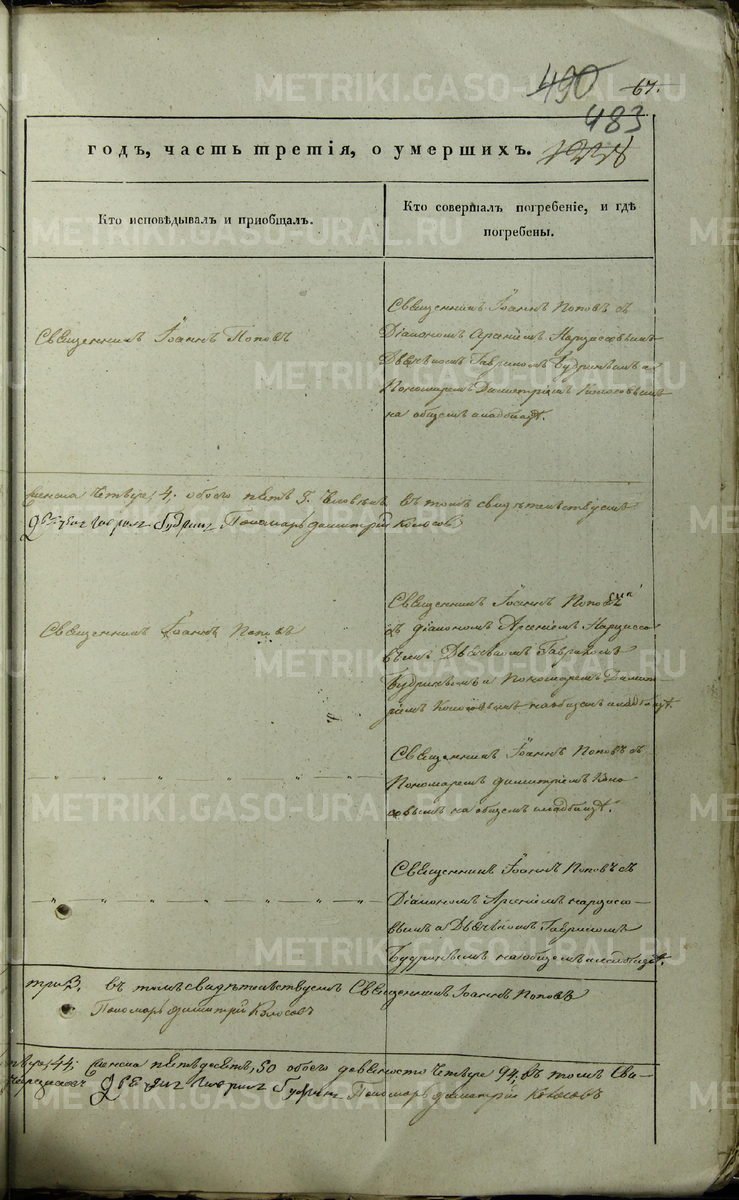 490
67.
483
годъ, часть третія, о умершихъ.
Кто исповѣдывалъ и пріобщалъ.
Кто совершалъ погребеніе, и гдѣ
погребены.
Священникъ Іоаннъ Поповъ
Священникъ Іоаннъ Поповъ съ
Діакономъ Арсеніемъ Нарциссовымъ
Дьячкомъ Гавриломъ Будринымъ и
Пономаремъ Димитріемъ Колосовымъ
на общемъ кладбищѣ.
женска четыре, 4; обоего пять человѣкъ въ томъ свидѣтельствуемъ
Дьячекъ Гаврилъ Будринъ Пономарь Димитрій Колосовъ
Священникъ Іоаннъ Поповъ
Священникъ Іоаннъ Поповъ
съ Діакономъ Арсеніемъ Нарциссо-
вымъ Дьячкомъ Гавриломъ
Будринымъ и Пономаремъ Димит-
ріемъ Колосовымъ на общемъ кладбищѣ.
Священникъ Іоаннъ Поповъ съ
Пономаремъ Димитріемъ Коло-
совымъ на общемъ кладбищѣ.
Священникъ Іоаннъ Поповъ съ
Діакономъ Арсеніемъ Нарциссо-
вымъ и Дьячкомъ Гавриломъ
Будринымъ на общемъ кладбищѣ.
три 3. въ томъ свидѣтельствуемъ Священникъ Іоаннъ Поповъ
Пономарь Димитрій Колосовъ
44; женска пятьдесятъ, 50 обоего девяносто четыре 94; въ томъ сви-
Гаврилъ Будринъ Пономарь Димитрій Колосовъ
METRIKI.GASO-URAL.RU